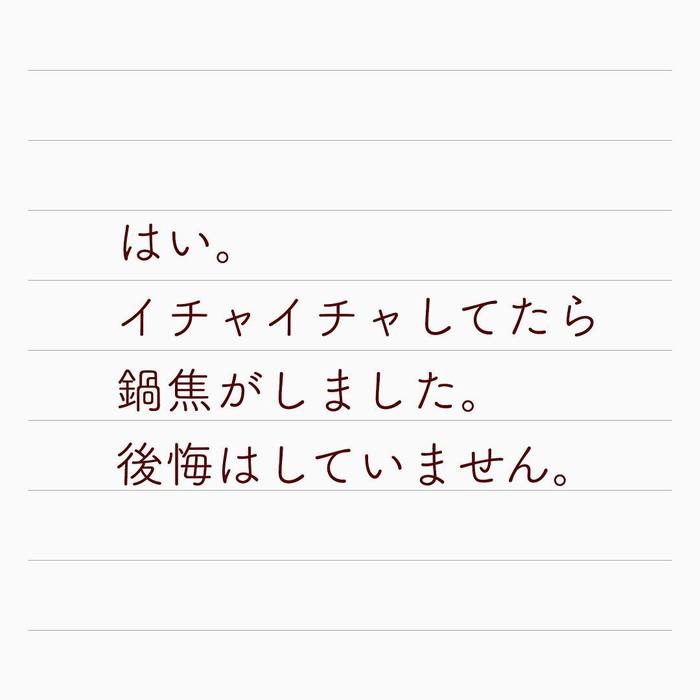 はい。
イチャイチャしてたら
鍋焦がしました。
後悔はしていません。